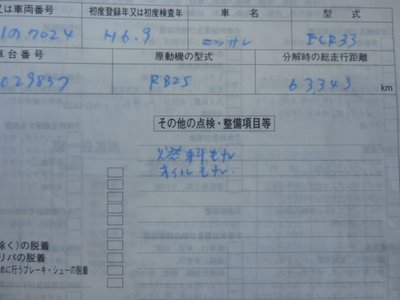 又は車両番号 初度登録年又は初度検査年 車名 型式
7024 H6.9 ニッサン ECR33
車台番号 原動機の型式 分解時の総走行距離
029837 RB25 63,343 km
その他の点検・整備項目等
燃料もれ
オイルもれ
除く)の脱着
リバの脱着
めに行うブレーキ・シューの脱着